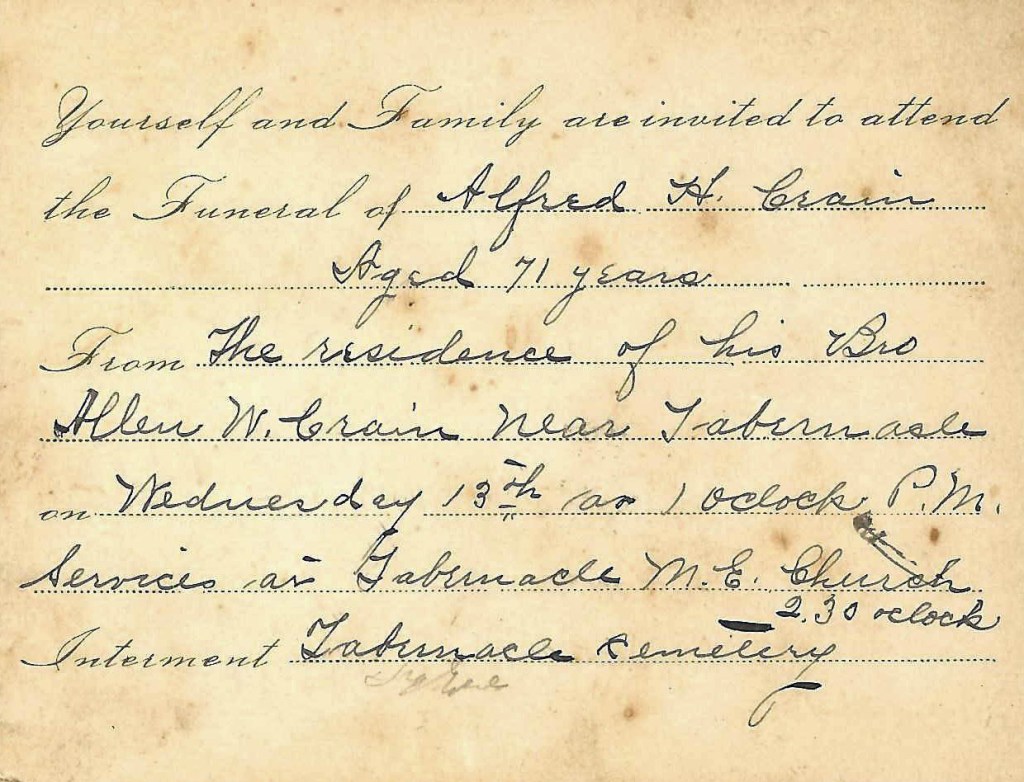 Yourself and Family are invited to attend
the Funeral of Alfred H. Crain
Aged 71 years
From The residence of his Bro
Allen W. Crain near Tabernacle
on Wednesday 13th at 1 oclock P.M.
Services at Tabernacle M.E. Church
2.30 oclock
Interment Tabernacle Cemetery